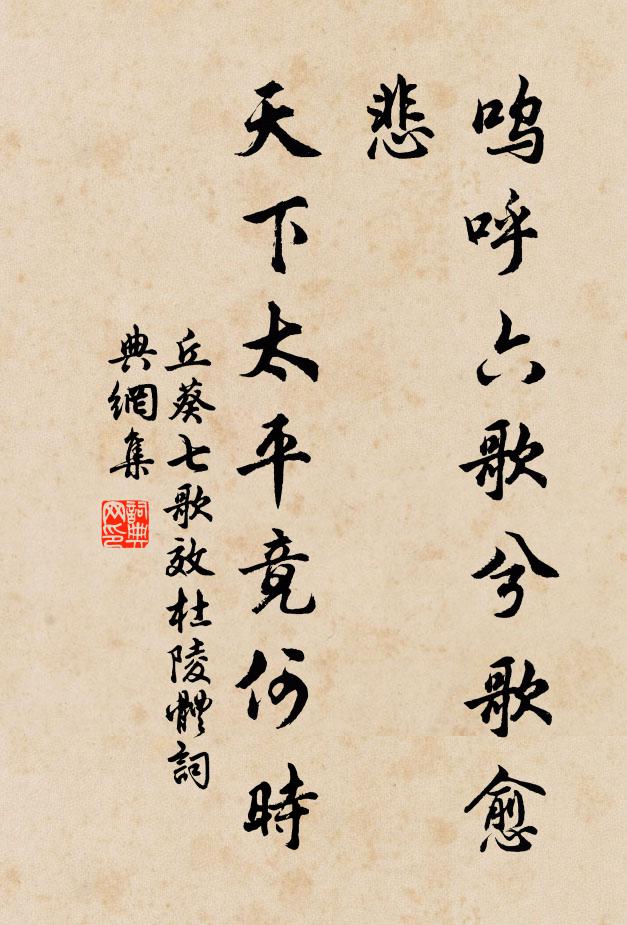 嗚呼六歌兮歌愈
悲
天下太平竟何時
丘葵七歌效杜陵體詞
典網集
詞典网印